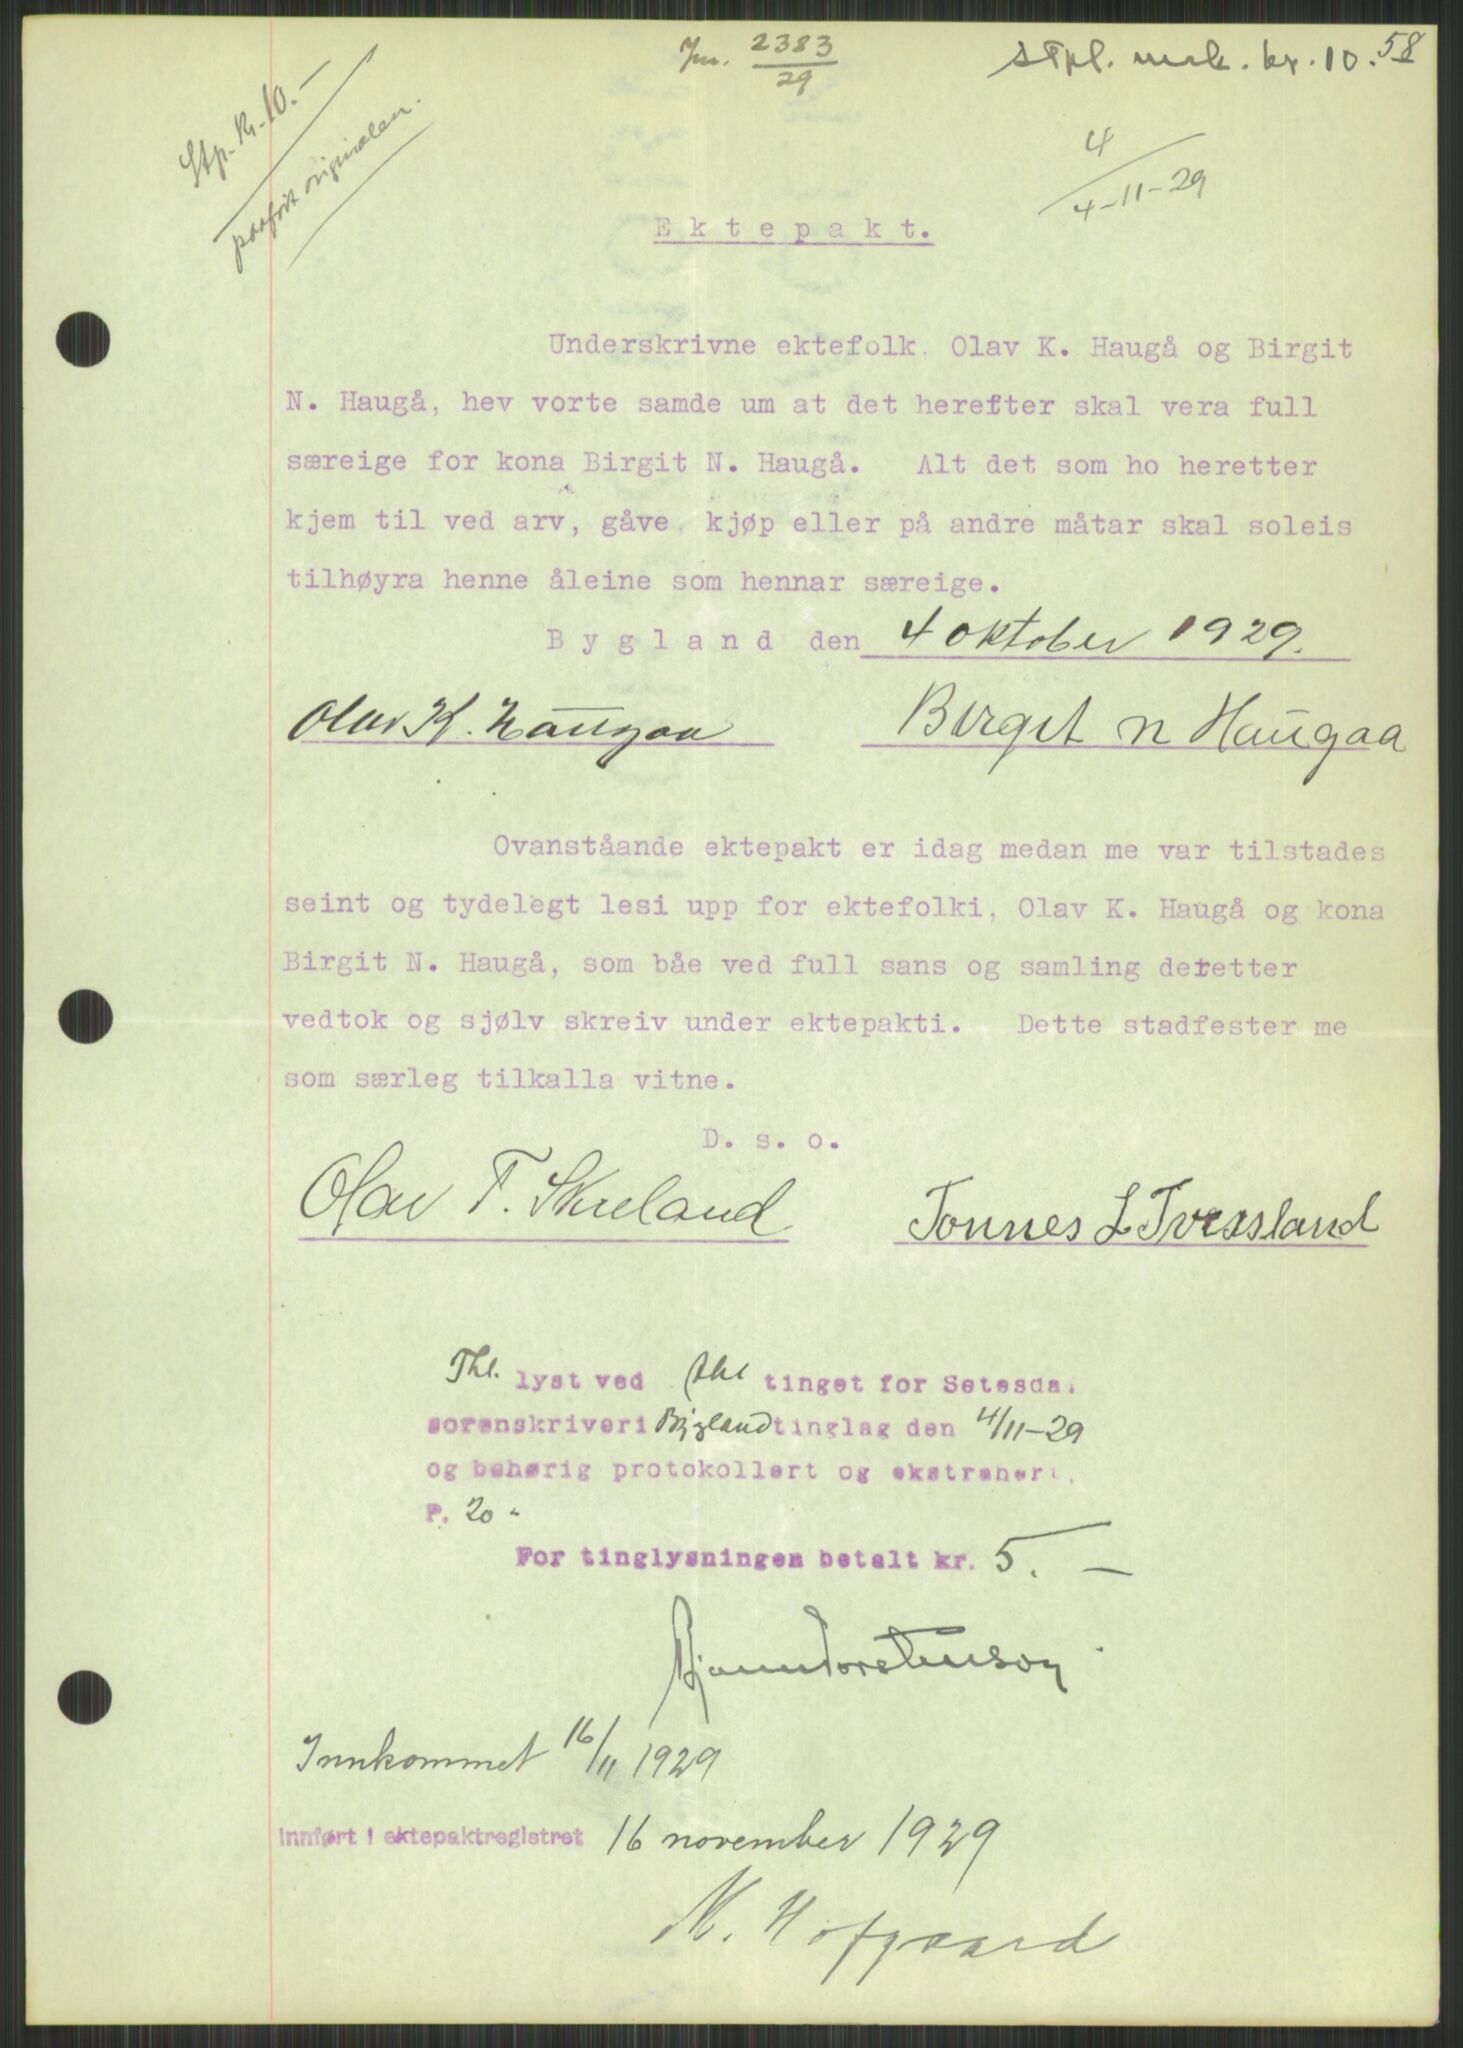 Jnr. 2383/29
stpl. merk. kr. 10. 58
Stp. Kr. 10.-
paaført originalen.
4/4-11-29
Ektepakt.
Underskrivne ektefolk, Olav K. Haugå og Birgit
N. Haugå, hev vorte samde um at det herefter skal vera full
særeige for kona Birgit N. Haugå. Alt det som ho heretter
kjem til ved arv, gåve, kjøp eller på andre måtar skal soleis
tilhøyra henne åleine som hennar særeige.
Bygland den 4 oktober 1929.
Olav K. Haugaa Birgit N Haugaa
Ovanståande ektepakt er idag medan me var tilstades
seint og tydelegt lesi upp for ektefolki, Olav K. Haugå og kona
Birgit N. Haugå, som båe ved full sans og samling deretter
vedtok og sjølv skreiv under ektepakti. Dette stadfester me
som særleg tilkalla vitne.
D. s. o.
Olav T. Skreland Tonnes L Tvessland
Thl. lyst ved tinget for Setesdal
sorenskriveri Bygland tinglag den 4/11-29
og behørig protokollert og ekstrahert.
P. 20 -
For tinglysningen betalt kr. 5.-
Innkommet 16/11 1929
Innført i ektepaktregistret 16 november 1929
N. Hofgaard